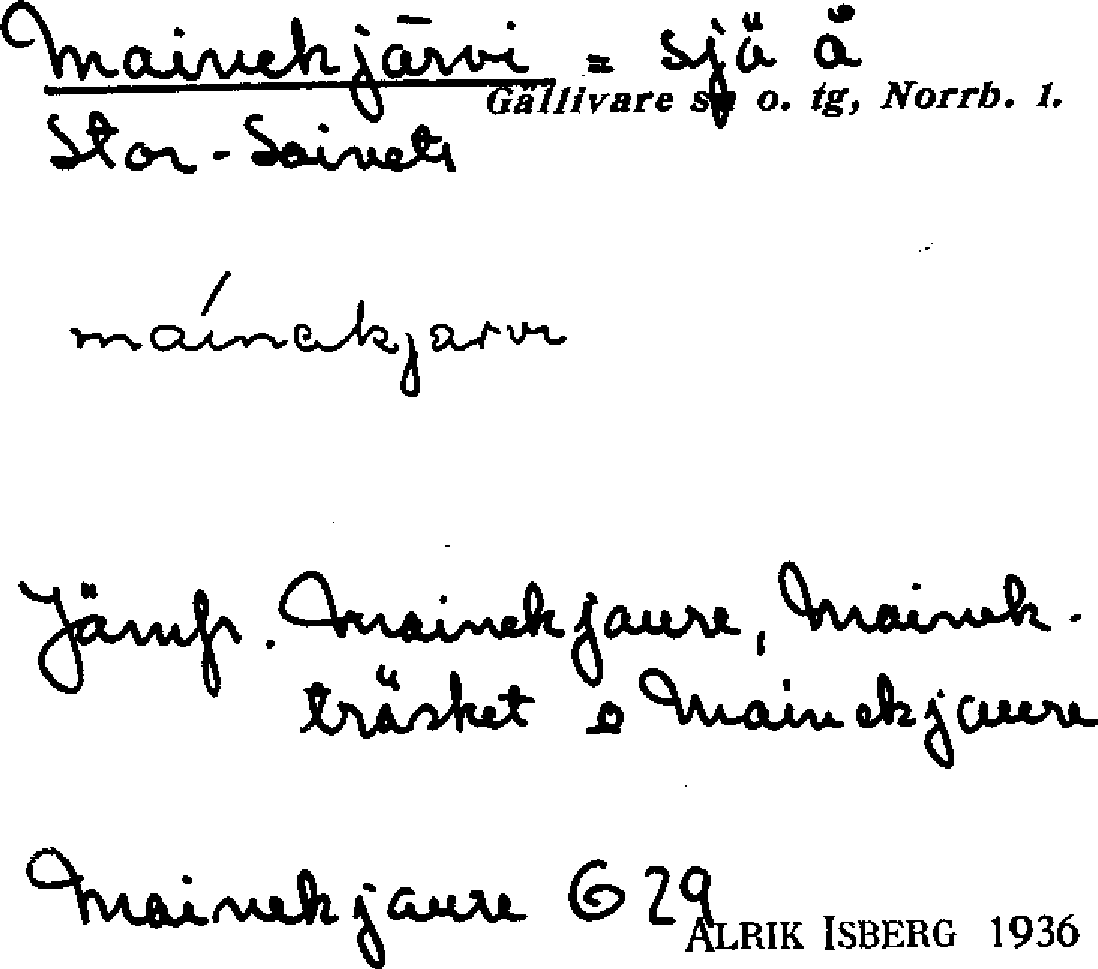 Mainekjärvi = sjö å
Gällivare sn o. tg, Norrb. l.
Stor-Soivets
máinekjarvi
Jämfr. Mainekjaure, Mainek-
träsket o Mainekjaure
Mainekjaure G 29
ALRIK ISBERG 1936